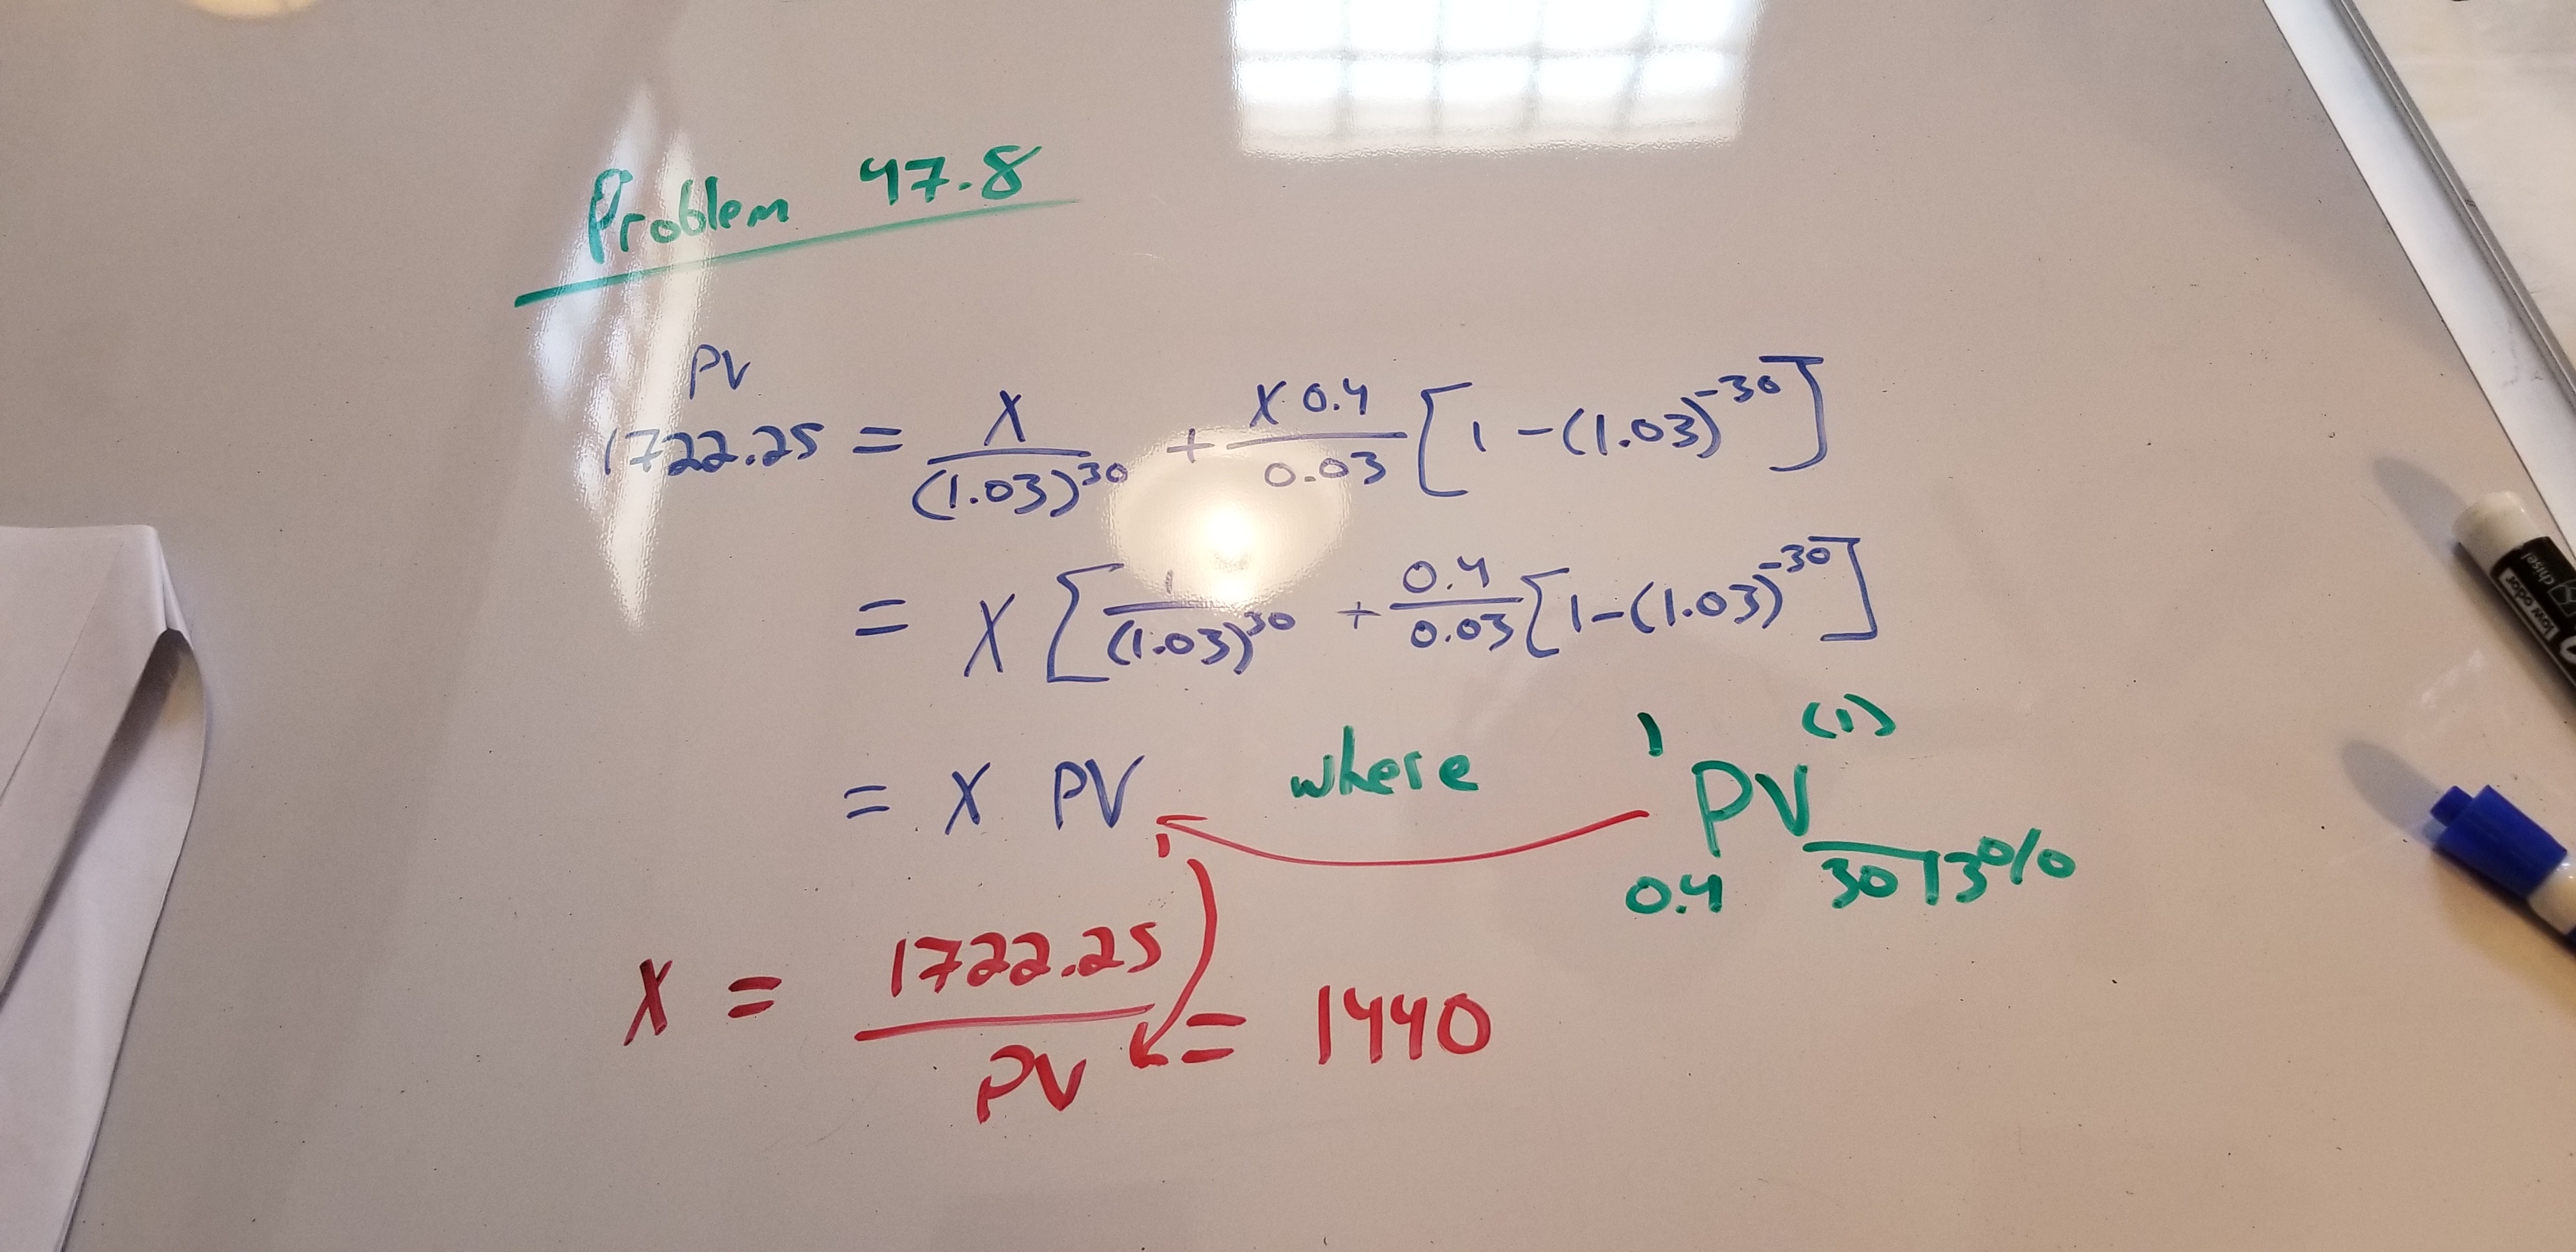 Problem 47.8
PV
1722.25 = X/(1.03)^30 + X 0.4/0.03 [1-(1.03)^-30]
= X [1/(1.03)^30 + 0.4/0.03 [1-(1.03)^-30]
= X PV where 1 PV (1) 0.4 30|3%
X = 1722.25/PV = 1440
chisel
low odor